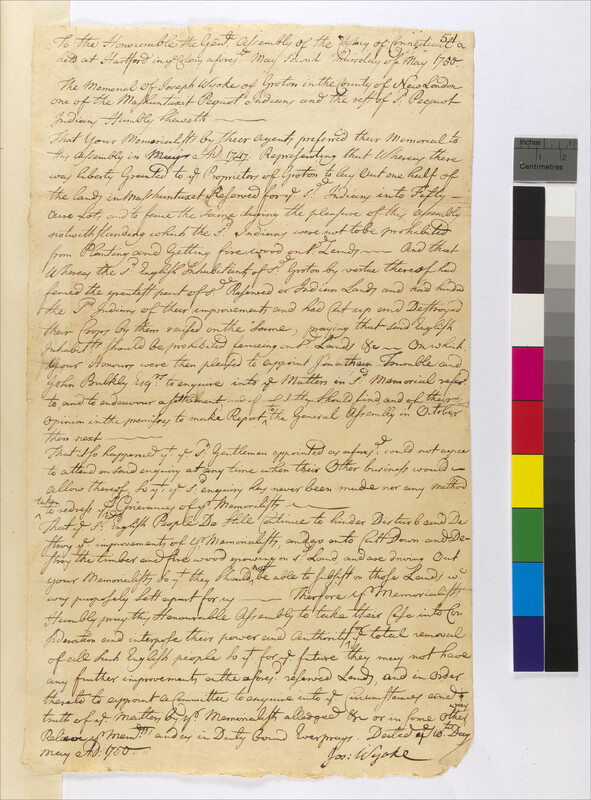 51
To the Honourable the Genll Assembly of the Colony of Connecticut
held at Hartford in ye Colony aforesd May second Thursday of May 1750
The Memorial of Joseph Wyoke of Groton in the County of New London
one of the Mashuntuxet Pequot Indians and the rest of sd Pequot
Indians Humbly sheweth
That Your Memorialists by their agents preferred their Memorial to
this Assembly in May AD: 1747. Representing that Whereas there
was liberty Granted to ye Proprietors of Groton to lay out one half of
the lands in Mashuntuxet Reserved for ye sd Indians into Fifty
acre Lots, and to fence the same during the pleasure of this Assembly
notwithstanding which the sd Indians were not to be prohibited
from Planting and Getting fire wood on sd Lands — And that
Whereas the sd English Inhabitants of sd Groton by vertue thereof had
fenced the greatest part of sd Reserved or Indian Lands and had hindred
the sd Indians of their improvements and had Cut up and Destroyed
their Crops by them raised on the same, praying that said English
Inhabitts should be prohibited fencing on sd Lands &c — On which
Your Honours were then pleased to appoint Jonathan Trumble and
John Bulkley Esqrs to enquire into ye Matters in sd Memorial refer'd
to and to endeavour a settlement and of what they should find and of their
opinion in the premises to make Report to the General Assembly in October
then next
That it so happened yt ye sd Gentlemen appointed as aforesd could not agree
to attend on said enquiry at any time when their Other business would
allow thereof, so yt ye sd enquiry has never been made nor any method
taken to redress ye Grievances of yr Memorialists
That ye sd English People Do still Continue to hinder Disturb and De
stroy ye improvements of yr Memorialists, and go on to Cutt Down and De
stroy the timber and fire wood growing on sd Land and are driving Out
your Memorialists so yt they should not be able to subsist on those Lands wc
was purposely sett apart for ym — Therefore yr Memorialists
Humbly pray this Honourable Assembly to take their Case into Con
sideration and interpose their power and Authority for ye total removal
of all such English people so yt for ye future they may not have
any further improvements on the aforesd reserved Land, and in order
thereto to appoint a Committee to enquire into ye Circumstances and
truth of ye Matters by yr Memorialists alledged &c or in some other way
Relieve yr Memsts and as in Duty bound Ever prays. Dated ye 10th Day
May AD: 1750.
Jos: Wyoke
Inches
1
2
Centimetres